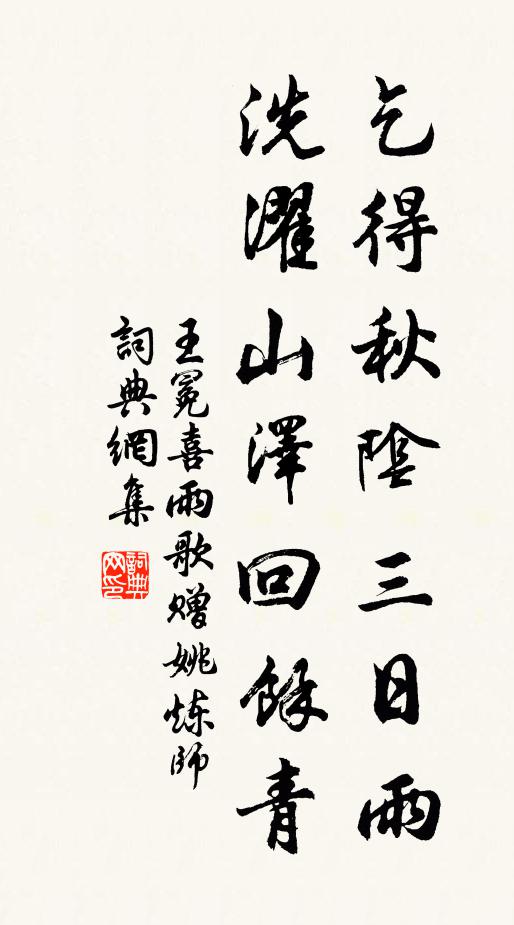 乞得秋陰三日雨
洗濯山澤回餘青
王冕喜雨歌赠姚炼師
詞典網集
詞典网印